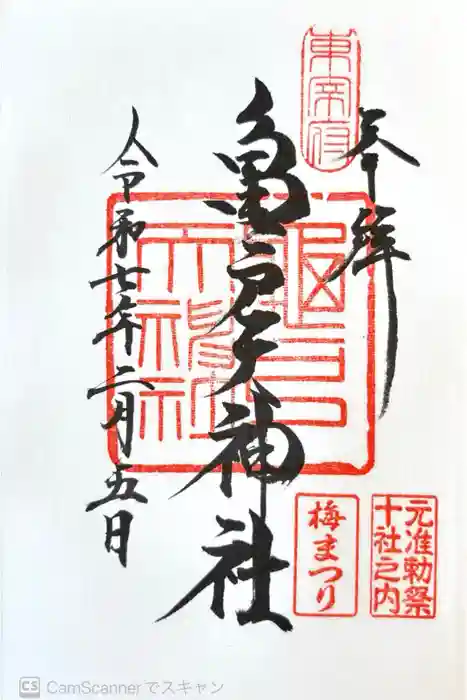 奉拝
東宰府
亀戸天神社
令和七年二月五日
元准勅祭
十社之内
梅まつり
CS CamScannerでスキャン